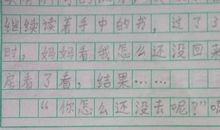 继续读着手中的书，过了3
时，妈妈看我怎么还没回来
房看了看，结果……
“你怎么还没去呢？”